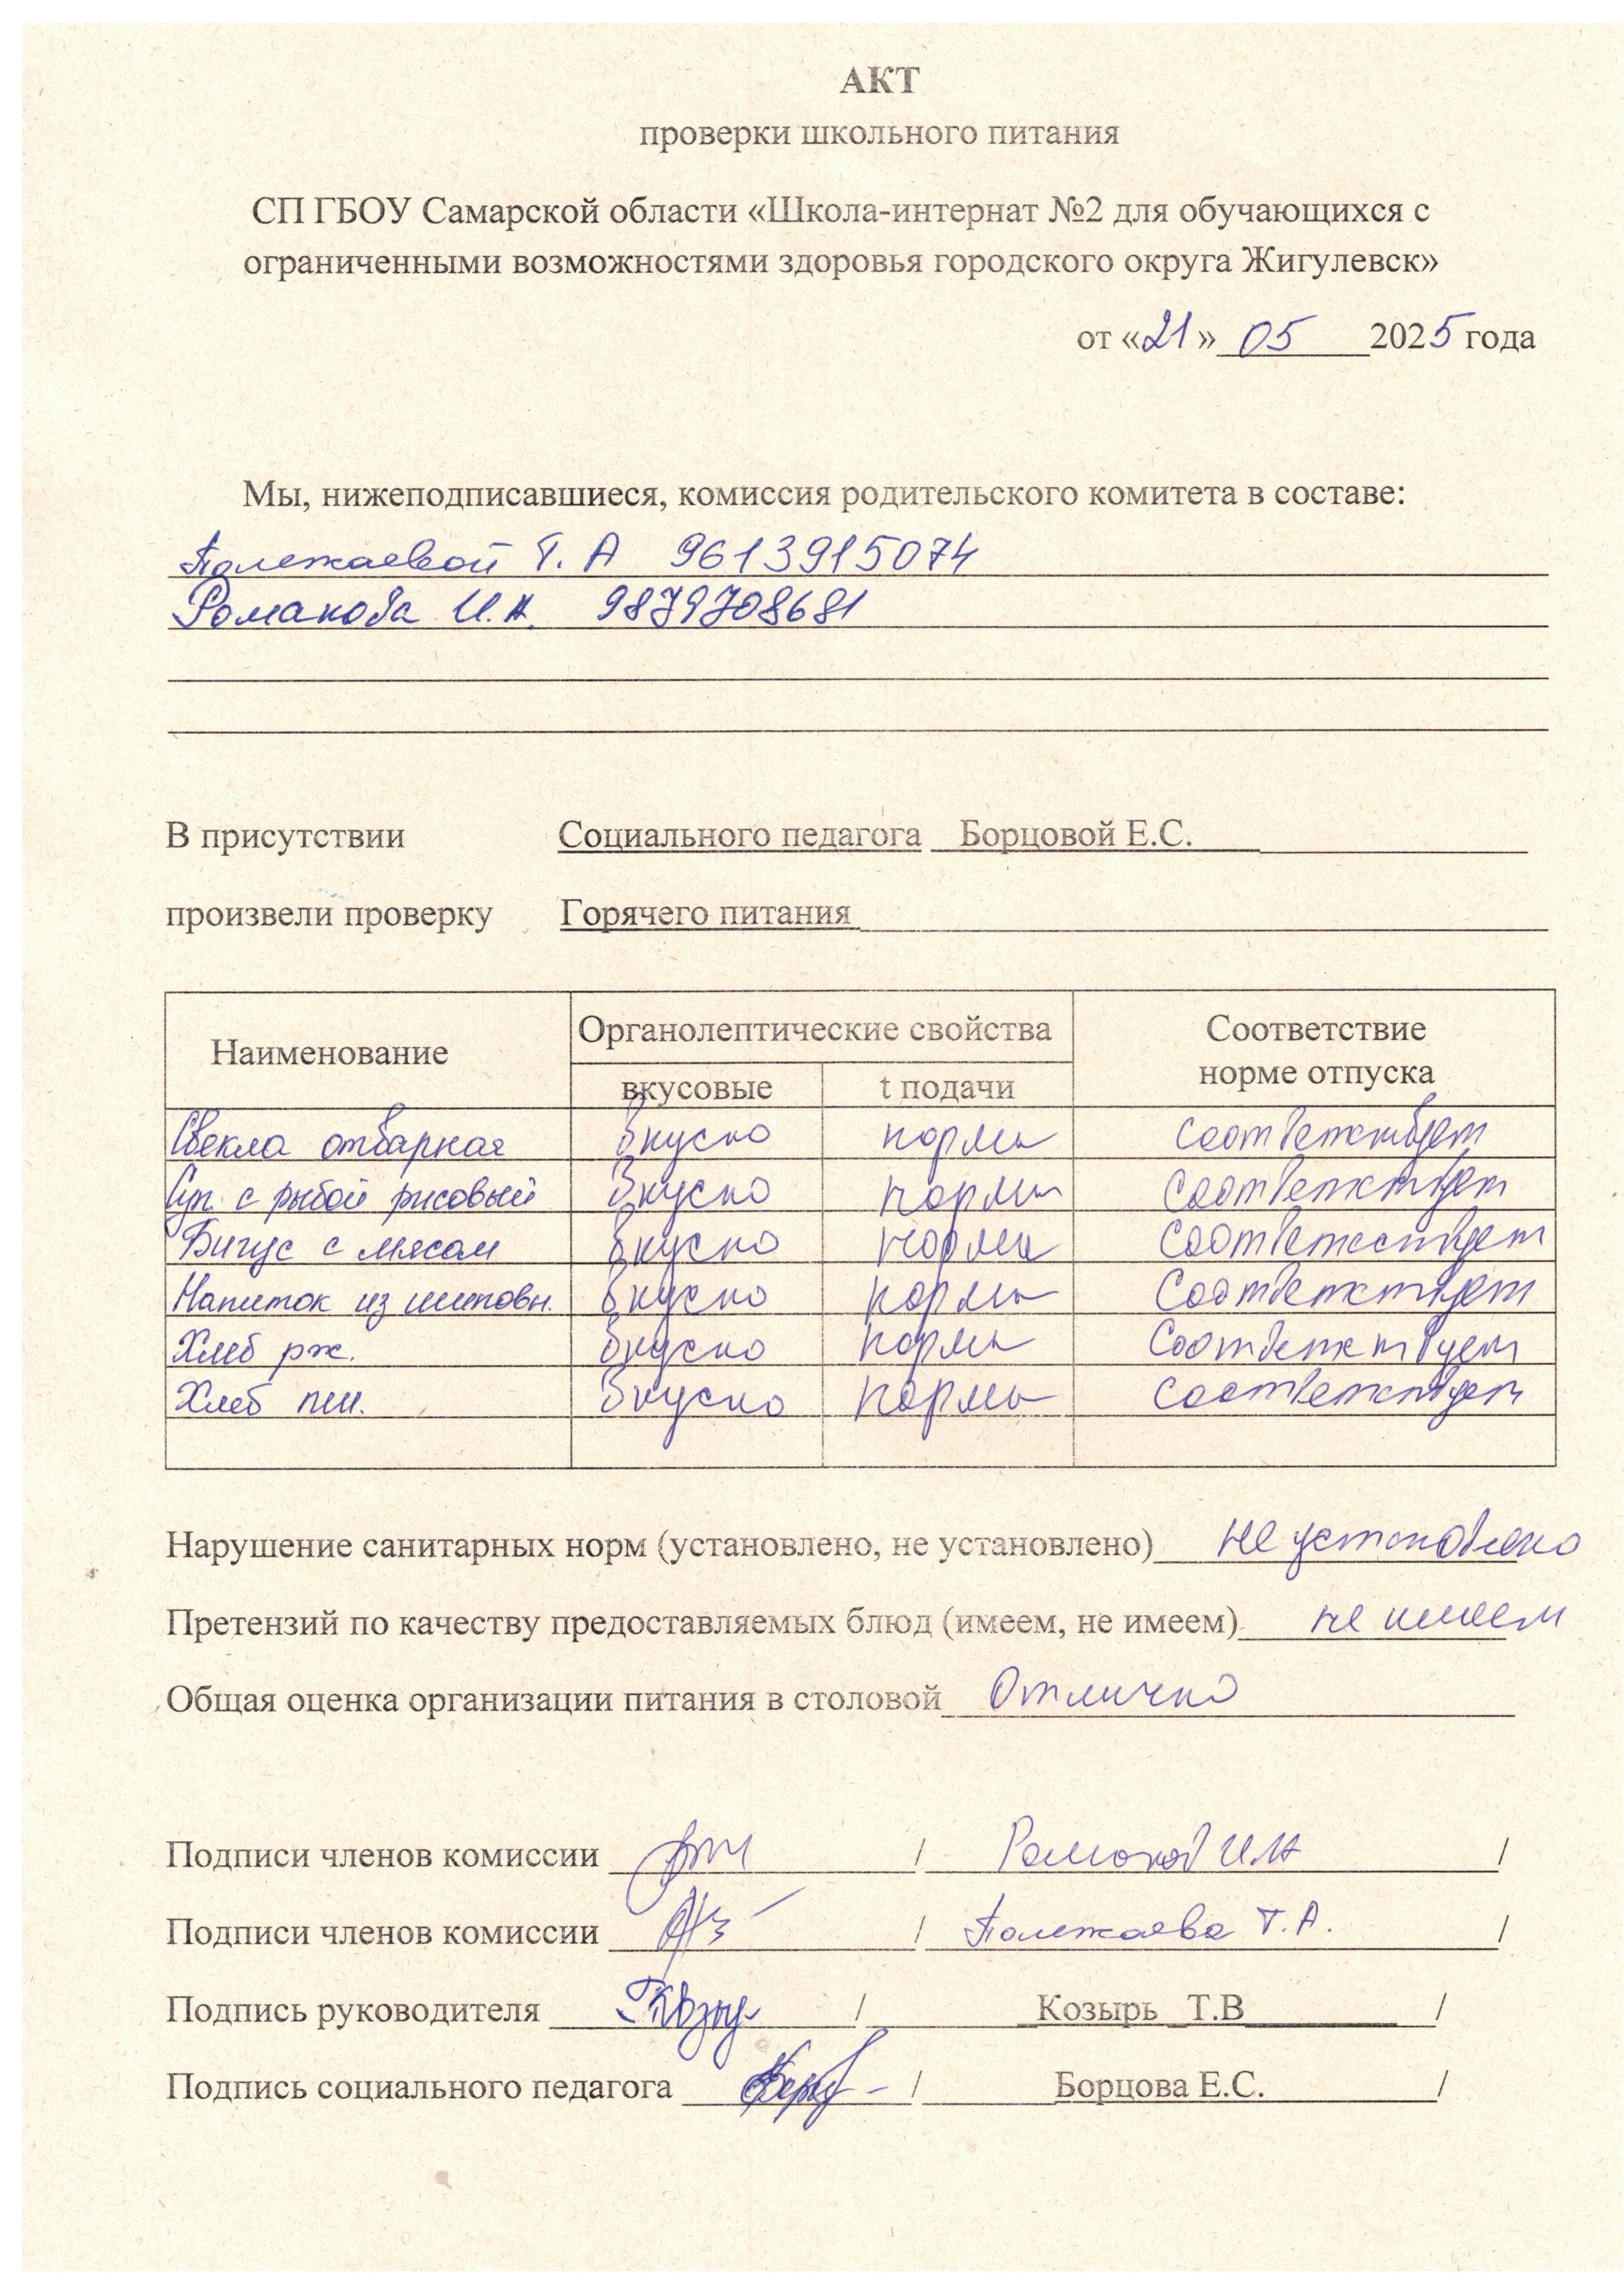 АКТ
проверки школьного питания
СП ГБОУ Самарской области «Школа-интернат №2 для обучающихся с
ограниченными возможностями здоровья городского округа Жигулевск»
от «21» 05 2025 года
Мы, нижеподписавшиеся, комиссия родительского комитета в составе:
Полежаевой Т. А 9613915074
Романова И.Н. 9879708681
В присутствии Социального педагога Борцовой Е.С.
произвели проверку Горячего питания
Наименование Органолептические свойства Соответствие
норме отпуска
вкусовые t подачи
Свекла отварная вкусно норма соответствует
Суп с рыбой рисовый вкусно норма соответствует
Бигус с мясом вкусно норма соответствует
Напиток из шиповн. вкусно норма соответствует
Хлеб рж. вкусно норма соответствует
Хлеб пш. вкусно норма соответствует
Нарушение санитарных норм (установлено, не установлено) не установлено
Претензий по качеству предоставляемых блюд (имеем, не имеем) не имеем
Общая оценка организации питания в столовой Отлично
Подписи членов комиссии / /
Подписи членов комиссии / Полежаева Т.А. /
Подпись руководителя / Козырь Т.В /
Подпись социального педагога / Борцова Е.С. /